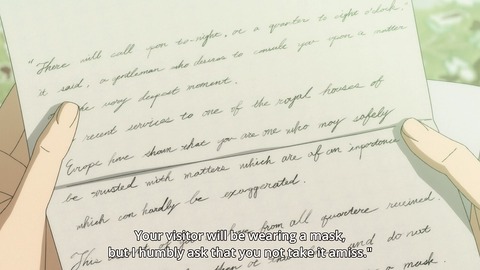 "There will call upon to-night, at a quarter to eight o'clock,"
it said, a gentleman who desires to consult you upon a matter
very deepest moment.
recent services to one of the royal houses of
Europe have shown that you are one who may safely
be trusted with matters which are of an importance
which can hardly be exaggerated.
This from all quarters received.
and do not
a mask.
Your visitor will be wearing a mask,
but I humbly ask that you not take it amiss."